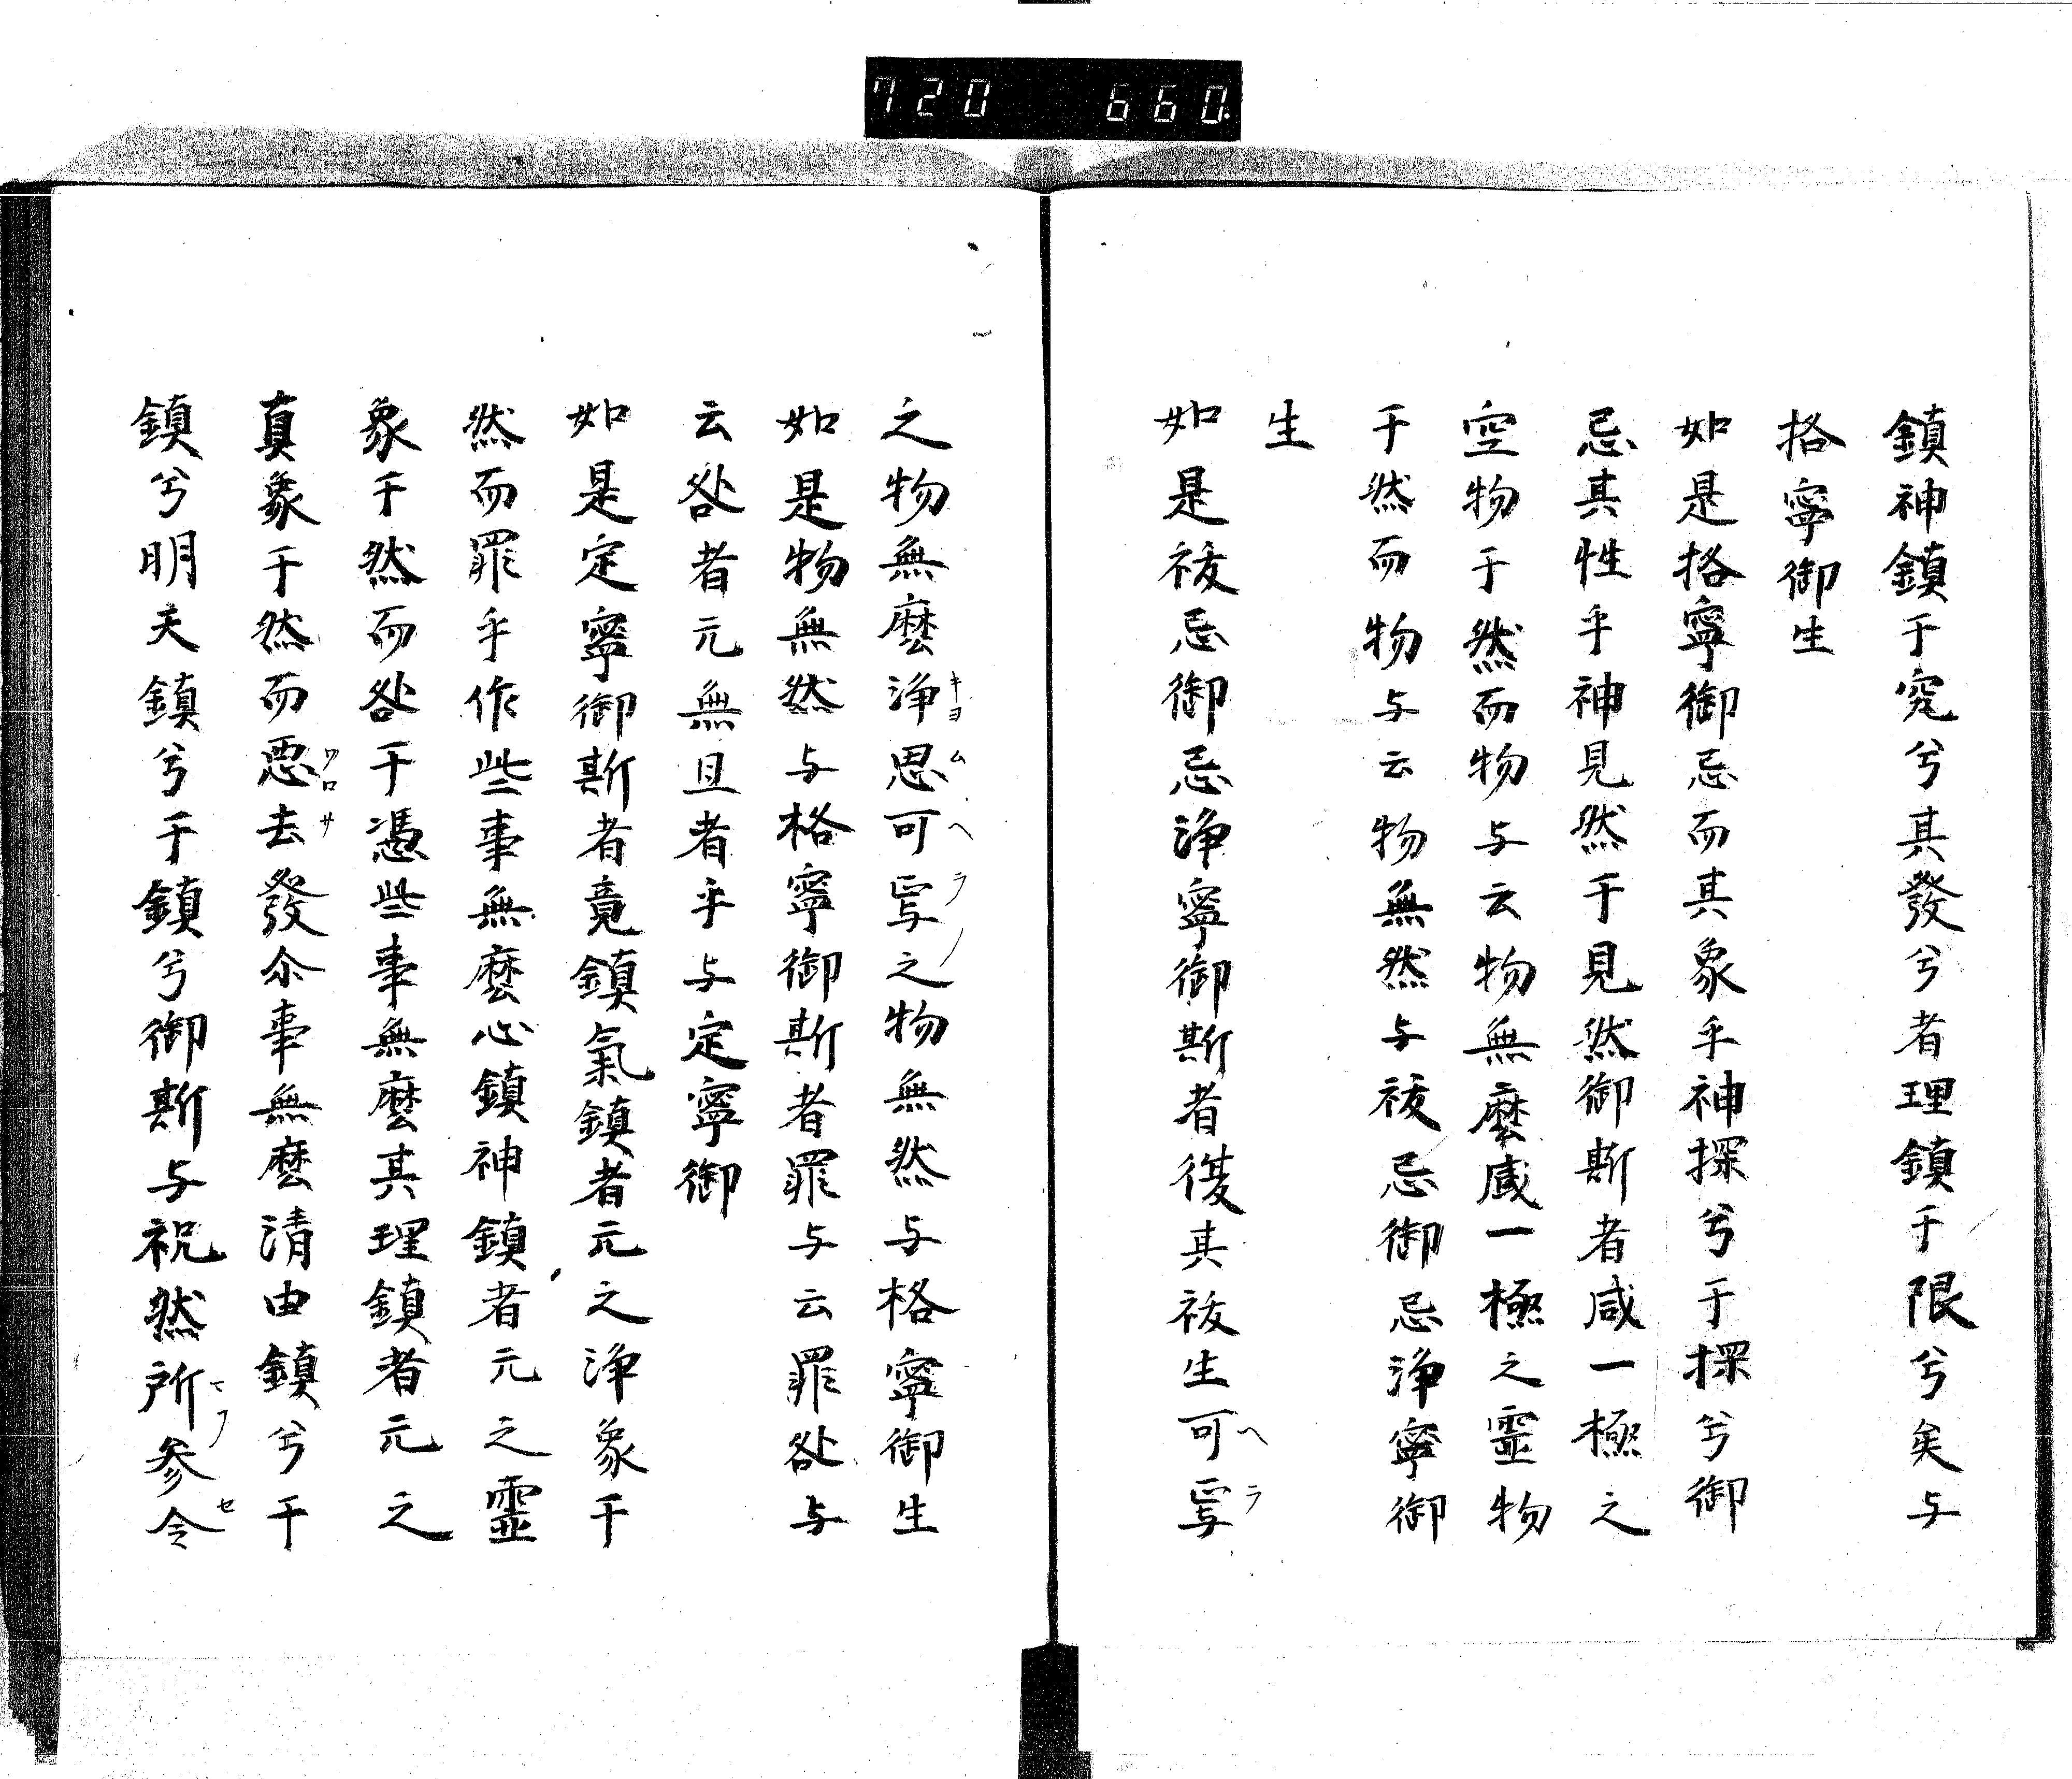 720 660
鎮神鎮于究兮其發兮者理鎮于限兮矣与
格寧御生
如是格寧御忌而其象乎神探兮于探兮御
忌其性乎神見然于見然御斯者咸一極之
空物于然而物与云物無麼咸一極之霊物
于然而物与云物無然与祓忌御忌浄寧御
生
如是祓忌御忌浄寧御斯者復其祓生可寫ヘラ
之物無麼浄思可寫之物無然与格寧御生キヨムヘラノ
如是物無然与格寧御斯者罪与云罪咎与
云咎者元無且者乎与定寧御
如是定寧御斯者竟鎮氣鎮者元之浄象于
然而罪乎作些事無麼心鎮神鎮者元之靈
象于然而咎于憑些事無麼其理鎮者元之
真象于然而悪去發尒事無麼清由鎮兮于ワロサ
鎮兮明夫鎮兮于鎮兮御斯与祝然所参令セ